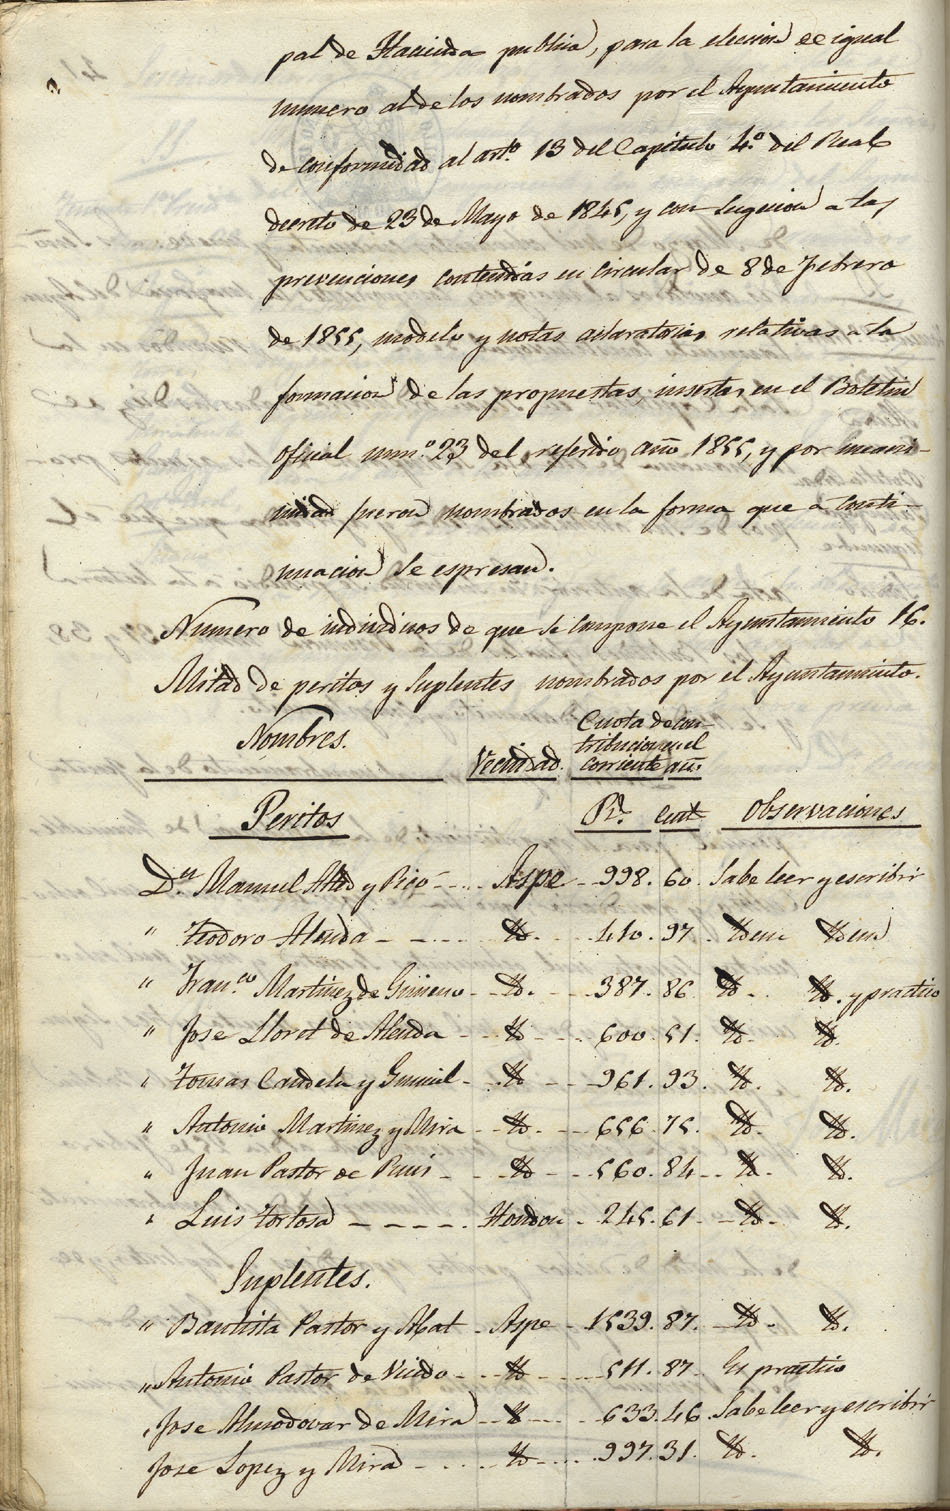 pal de Hacienda publica, para la elecion de igual
numero al de los nombrados por el Ayuntamiento
de conformidad al artº. 13 del Capitulo 4.º del Real
decreto de 23 de Mayo de 1845, y con sugecion a las
prevenciones contenidas en circular de 8 de Febrero
de 1855, modelo y notas aclaratorias relativas a la
formacion de las propuestas, insertas en el Boletin
oficial num.º 23 del referido año 1855, y por unani-
midad fueron nombrados en la forma que a conti-
nuacion se espresan.
Numero de individuos de que se compone el Ayuntamiento 16.
Mitad de peritos y Suplentes nombrados por el Ayuntamiento.
Nombres. Vecindad. Cuota de con-
tribucion en el
corriente año
Peritos Rs. cent. Observaciones
Dn. Manuel y Pico Aspe 998. 60 Sabe leer y escribir
" Teodoro Alenda Yd. 410. 97 Ydem Ydem
" Franco. Martinez de Gimeno Yd. 387. 86 Yd. Yd. y practico
" Jose Lloret de Alenda Yd. 600. 51 Yd. Yd.
" Tomas Candela y Yd. 961. 93. Yd. Yd.
" Antonio Martinez y Mira Yd. 656. 75. Yd. Yd.
" Juan Pastor de Yd. 560. 84 Yd. Yd.
" Luis Tortosa Hondon 245. 61 Yd. Yd.
Suplentes.
" Bautista Pastor y Abat Aspe 1539. 87. Yd. Yd.
" Antonio Pastor de Yd. 511. 87 Es practico
" Jose Almodovar de Mira Yd. 633. 46 Sabe leer y escribir
Jose Lopez y Mira Yd. 997. 31. Yd. Yd.